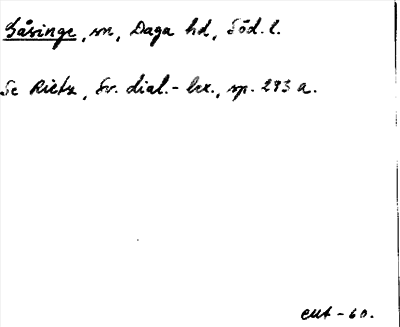 Gåsinge, sn, Daga hd, Söd. l.
Se Rietz, Sv. dial.-lex., sp. 293 a.
CUT-60.